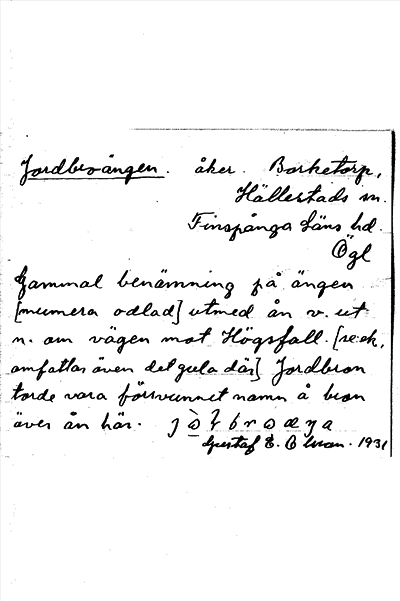 Jordbroängen. åker. Borketorp,
Hällestads sn.
Finspånga läns hd.
Ögl
Gammal benämning på ängen
[numera odlad] utmed ån v. ut
n. om vägen mot Högsfall. [re: ek,
omfattar även det gula där] Jordbron
torde vara försvunnet namn å bron
över ån här.
Gustaf E. 1931